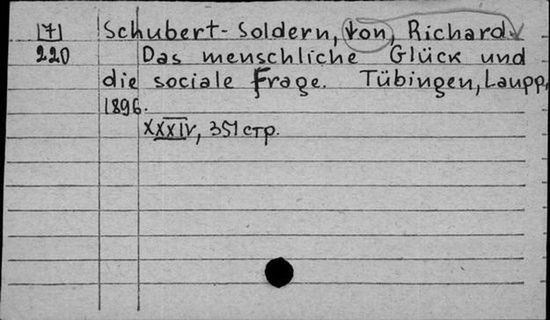 [7] Schubert-Soldern, von, Richard.
220 Das menschliche Glück und
die sociale Frage. Tübingen, Laupp,
1896.
XXXIV, 351 стр.